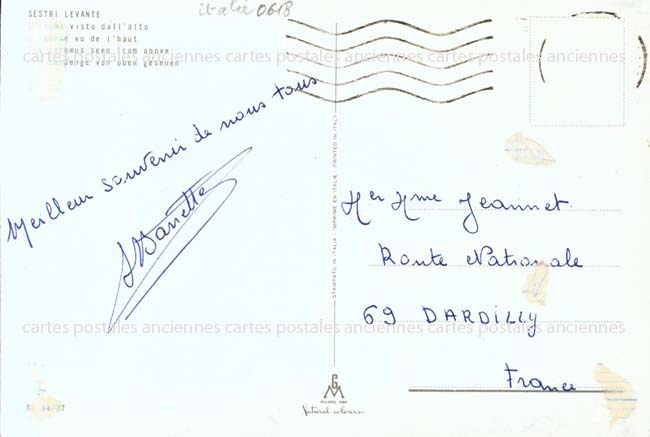 italie 0618
SESTRI LEVANTE
visto dall'alto
vu de l'haut
seen from above
von oben gesehen
cartes postales anciennes cartes postales anciennes cartes postales anciennes
Meilleur souvenir de nous tous
STAMPATO IN ITALIA - IMPRIME EN ITALIE - PRINTED IN ITALY
M er Mme Jeannet
Route Nationale
69 DARDILLY
France
cartes postales anciennes cartes postales anciennes cartes postales anciennes
GM
MILANO
Naturelcolours